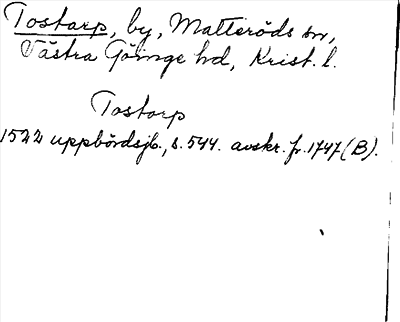 Tostarp, by, Matteröds sn,
Västra Göinge hd, Krist. l.
Tostarp
1522 uppbördsjb., s. 544. avskr. fr. 1747 (B).